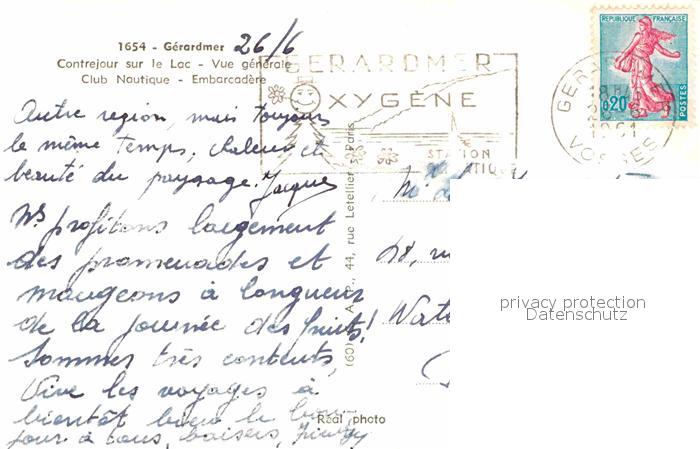 1654 - Gérardmer 26/6
Contrejour sur le Lac - Vue générale
Club Nautique - Embarcadère
GERARDMER
OXYGÈNE
STATION
REPUBLIQUE FRANÇAISE
0,20
POSTES
GER
18H
1961
VOSGES
Autre region, mais toujours
le même temps, chaleur et
beauté du paysage. Jacques
Ns profitons largement
des promenades et
mangeons à longueur
de la journée des fruits!
Sommes très contents,
Vive les voyages à
bientôt bien le bon-
jour à tous, baisers,
44, rue Letellier - Paris
(60)
Réal photo
48, ru
Wat
privacy protection
Datenschutz